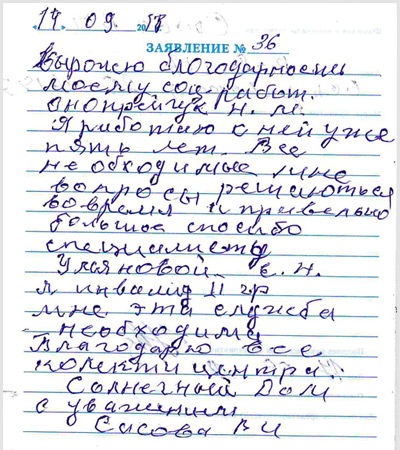 "14" 09 2017
ЗАЯВЛЕНИЕ № 36
Вырожю благодарность
моему соц.работ.
Анопрейчук Н. М.
Я работаю с ней уже
пять лет. Все
необходимые мне
вопросы решаються
вовремя и правельно
большое спосибо
специалисту
Ульяновой Е. Н.
Я инвалид II гр
мне эта служба
необходима
Благодарю все
колекти центра.
Солнечный Дом
с уважением
Сысова ВИ